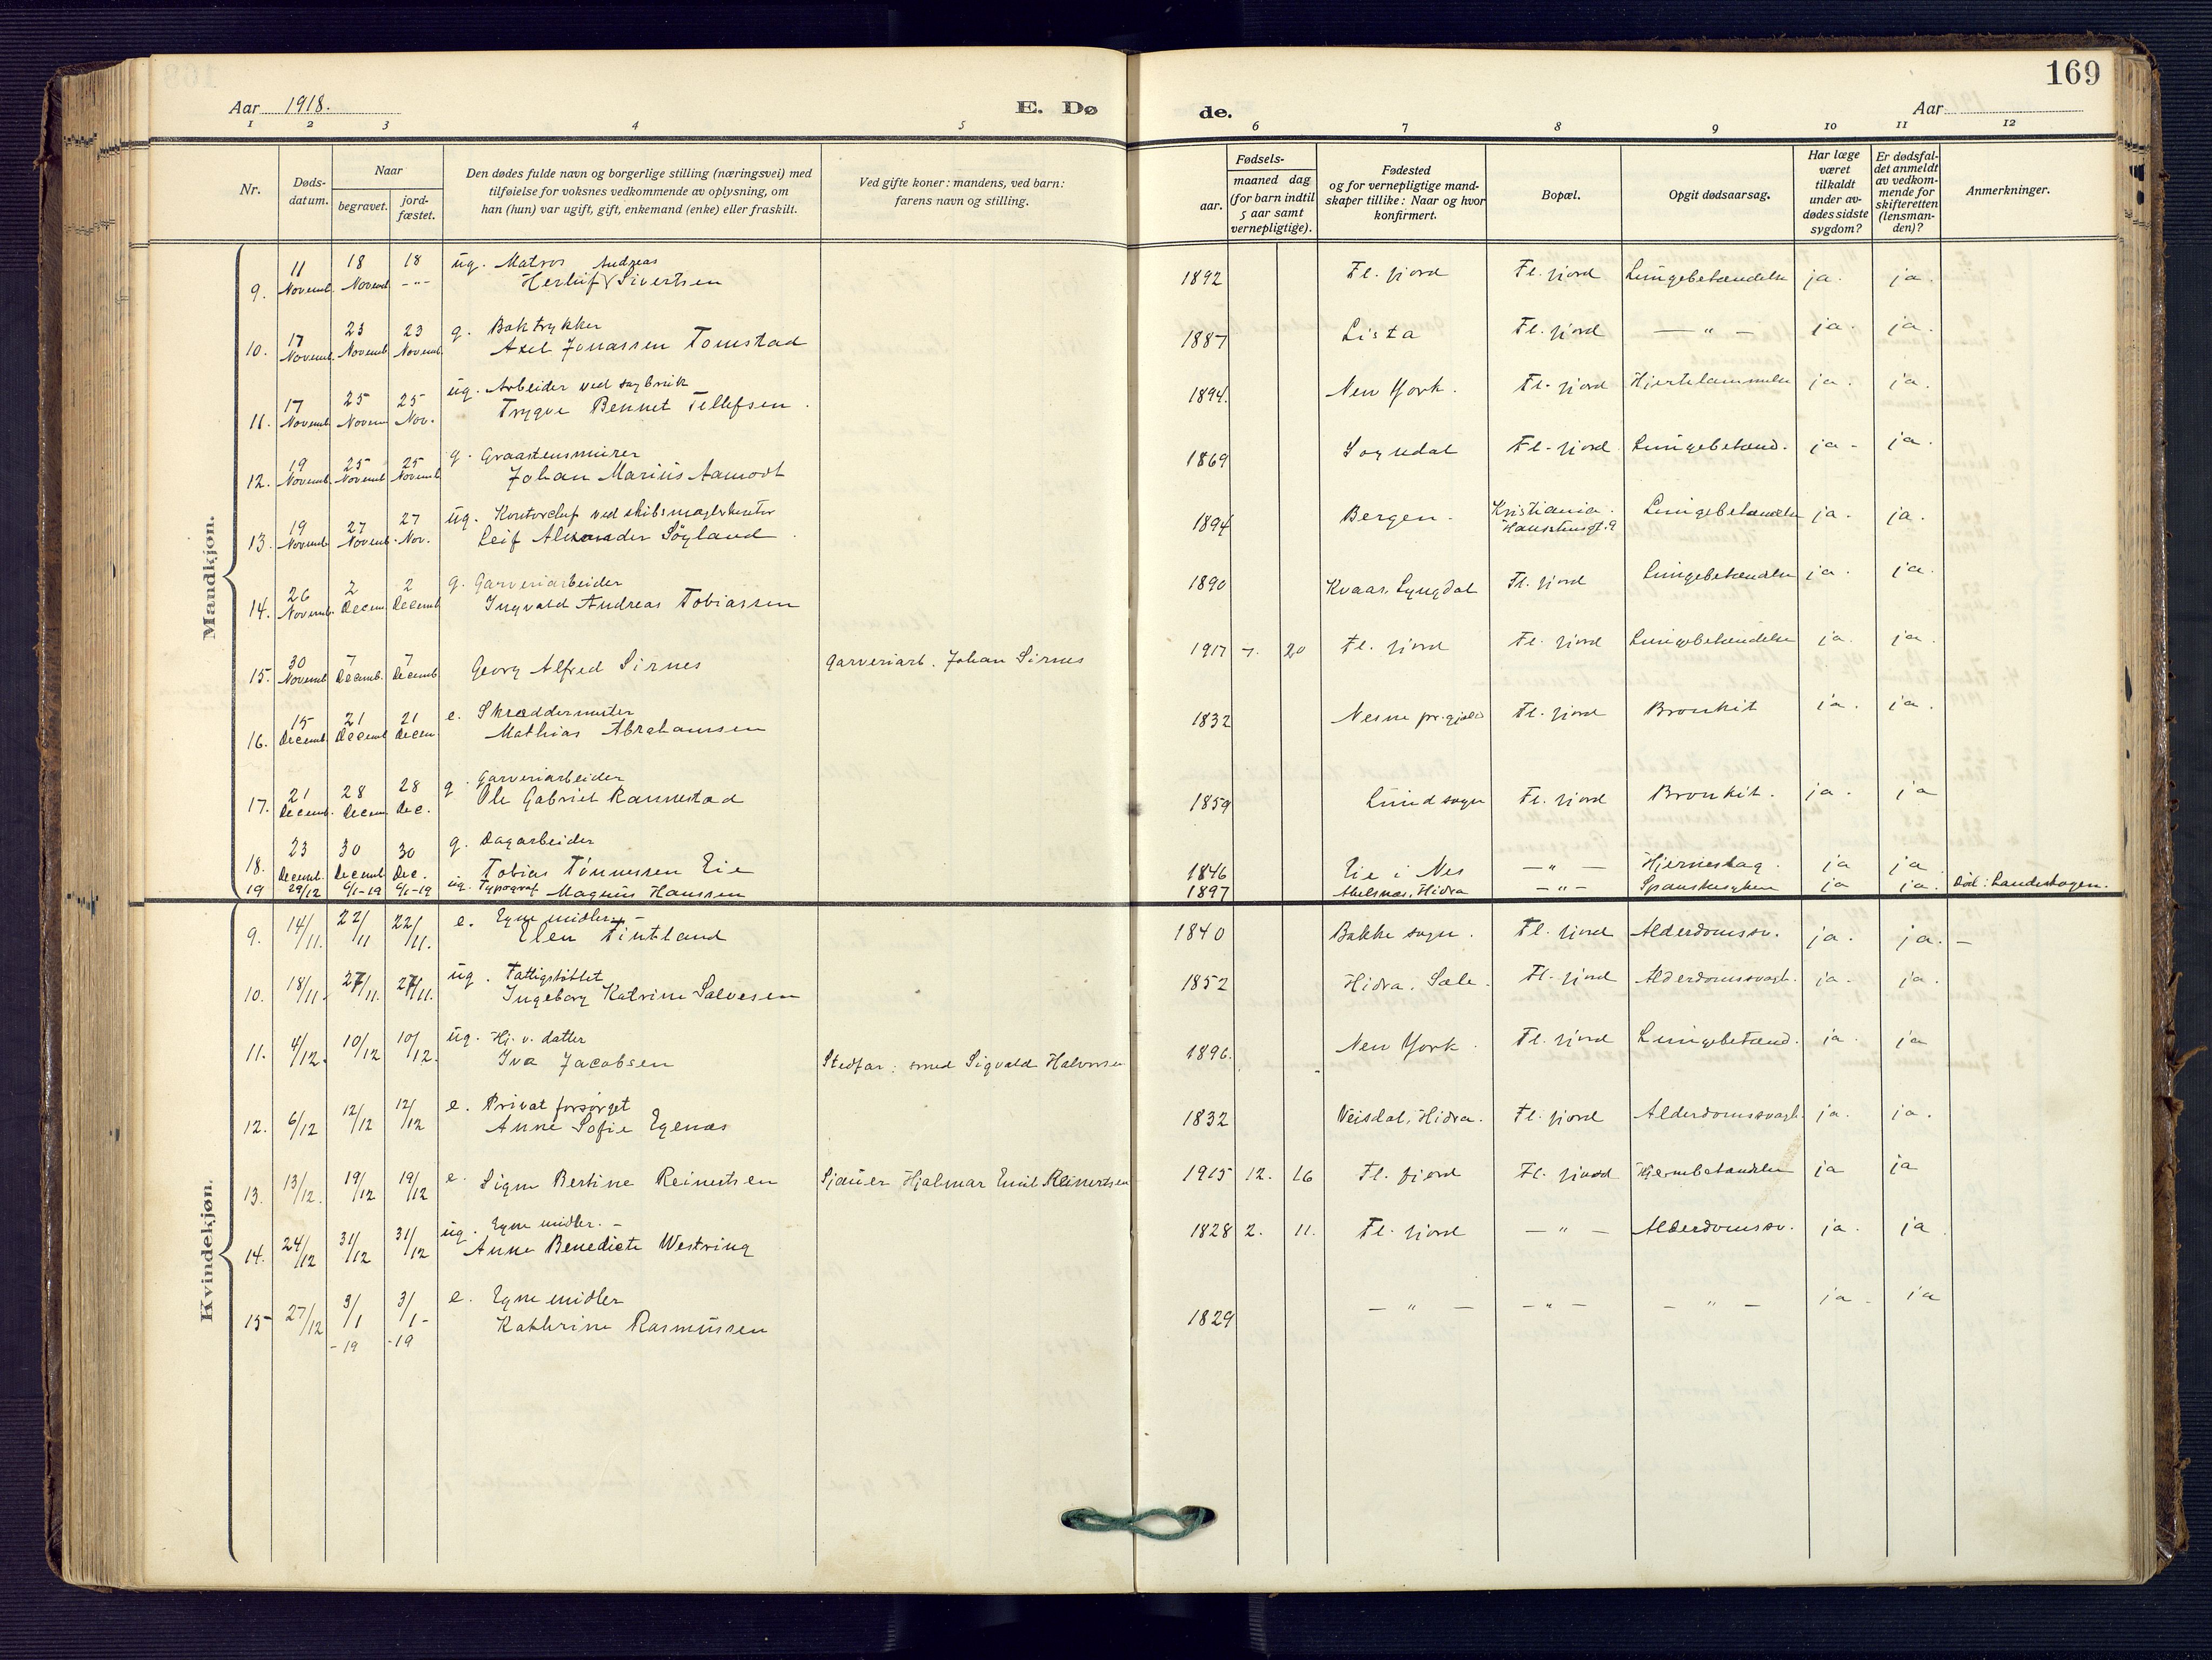 169
Aar 1918.
E. Dø
de.
Aar
1 2 3 4 5 6 7 8 9 10 11 12
Nr.
Døds-
datum.
Naar
begravet.
jord-
fæstet.
Den dødes fulde navn og borgerlige stilling (næringsvei) med
tilføielse for voksnes vedkommende av oplysning, om
han (hun) var ugift, gift, enkemand (enke) eller fraskilt.
Ved gifte koner: mandens, ved barn:
farens navn og stilling.
Fødsels-
aar.
maaned dag
(for barn indtil
5 aar samt
vernepligtige).
Fødested
og for vernepligtige mand-
skaper tillike: Naar og hvor
konfirmert.
Bopæl.
Opgit dødsaarsag.
Har læge
været
tilkaldt
under av-
dødes sidste
sygdom?
Er dødsfal-
det anmeldt
av vedkom-
mende for
skifteretten
(lensman-
den)?
Anmerkninger.
Mandkjøn.
9. 11 Novemb. 18 Novemb 18 -"- ug. Matros Andreas
Herluf Sivertsen 1892 Fl. fjord Fl. fjord Lungebetændelse ja. ja.
10. 17 Novemb. 23 Novemb 23 Novemb. g. Boktrykker
Axel Jonassen Tomstad 1887 Lista Fl. fjord — " — ja. ja.
11. 17 Novemb. 25 Novem 25 Nov. ug. Arbeider ved sagbruk
Trygve Bennet Tellefsen. 1894. New York. Fl. fjord Hjertelammelse ja. ja.
12. 19 Novemb. 25 Novemb 25 Novemb g. Graastensmurer
Johan Marius Aamodt 1869 Sogndal Fl. fjord Lungebetænd. ja - ja.
13. 19 Novemb 27 Novemb. 27 Nov. ug. Kontorchef ved skibsmæglerkontor
Leif Alexander Søyland. 1894 Bergen. Kristiania.
Lungebetændelse ja. ja.
14. 26 Novemb. 2 Decem. 2 Decemb g. Garveriarbeider
Ingvald Andreas Tobiassen 1890 Kvaas, Lyngdal Fl. fjord Lungebetændelse ja. ja.
15. 30 Novemb 7 Decemb. 7 Decemb Georg Alfred Sirnes Garveriarb. Johan Sirnes 1917 7. 20 Fl. fjord Fl. fjord Lungebetændelse ja. ja.
16. 15 Decemb. 21 Decemb 21 Decem e. Skræddermester
Mathias Abrahamsen 1832 Nesne pr.gjeld Fl. fjord Bronkit ja. ja.
17. 21 Decemb. 28 Decem. 28 Dec. g. Garveriarbeider
Ole Gabriel Rannestad 1859 Lund sogn Fl. fjord Bronkit. ja. ja
18. 23 Decemb. 30 Decemb 30 Dec. g. Dagarbeider
Tobias Tønnessen Eie 1846 Eie i Nes — " — Hjerneslag. ja ja
19 29/12 6/1-19 6/1-19 ug. Typograf Magnus Hanssen 1897 Abelsnes, Hidra — " — Spanskesyken ja ja. Død: Landeskogen.
Kvindekjøn.
9. 14/11. 22/11 22/11. e. Egne midler. -
Elen Fintland 1840 Bakke sogn. Fl. fjord Alderdomssv. ja. ja. —
10. 18/11. 27/11. 27/11. ug. Fattigstøttet
Ingeborg Katrine Salvesen 1852 Hidra, Sæle. Fl. fjord Alderdomssvagh. ja. ja.
11. 4/12. 10/12 10/12. ug. Hj. v. datter
Iva Jacobsen Stedfar: smed Sigvald Halvorsen 1896. New York. Fl. fjord Lungebetænd. ja. ja
12. 6/12 12/12 12/12 e. Privat forsørget
Anne Sofie Egenæs 1832 Veisdal, Hidra. Fl. fjord Alderdomssvagh. ja. ja.
13. 13/12. 19/12 19/12 e. Signe Bertine Reinertsen Sjauer Hjalmar Emil Reinertsen 1915 12. 16 Fl. fjord Fl. fjord Hjernebetændelse ja ja
14. 24/12 31/12 31/12 ug. Egne midler. -
Anne Benedicte Westring 1828 2. 11. Fl. fjord — " — Alderdomssv. ja. ja.
15 27/12 3/1 -19 3/1- -19 e. Egne midler
Kathrine Rasmussen 1829 — " — — " — — " — ja - ja